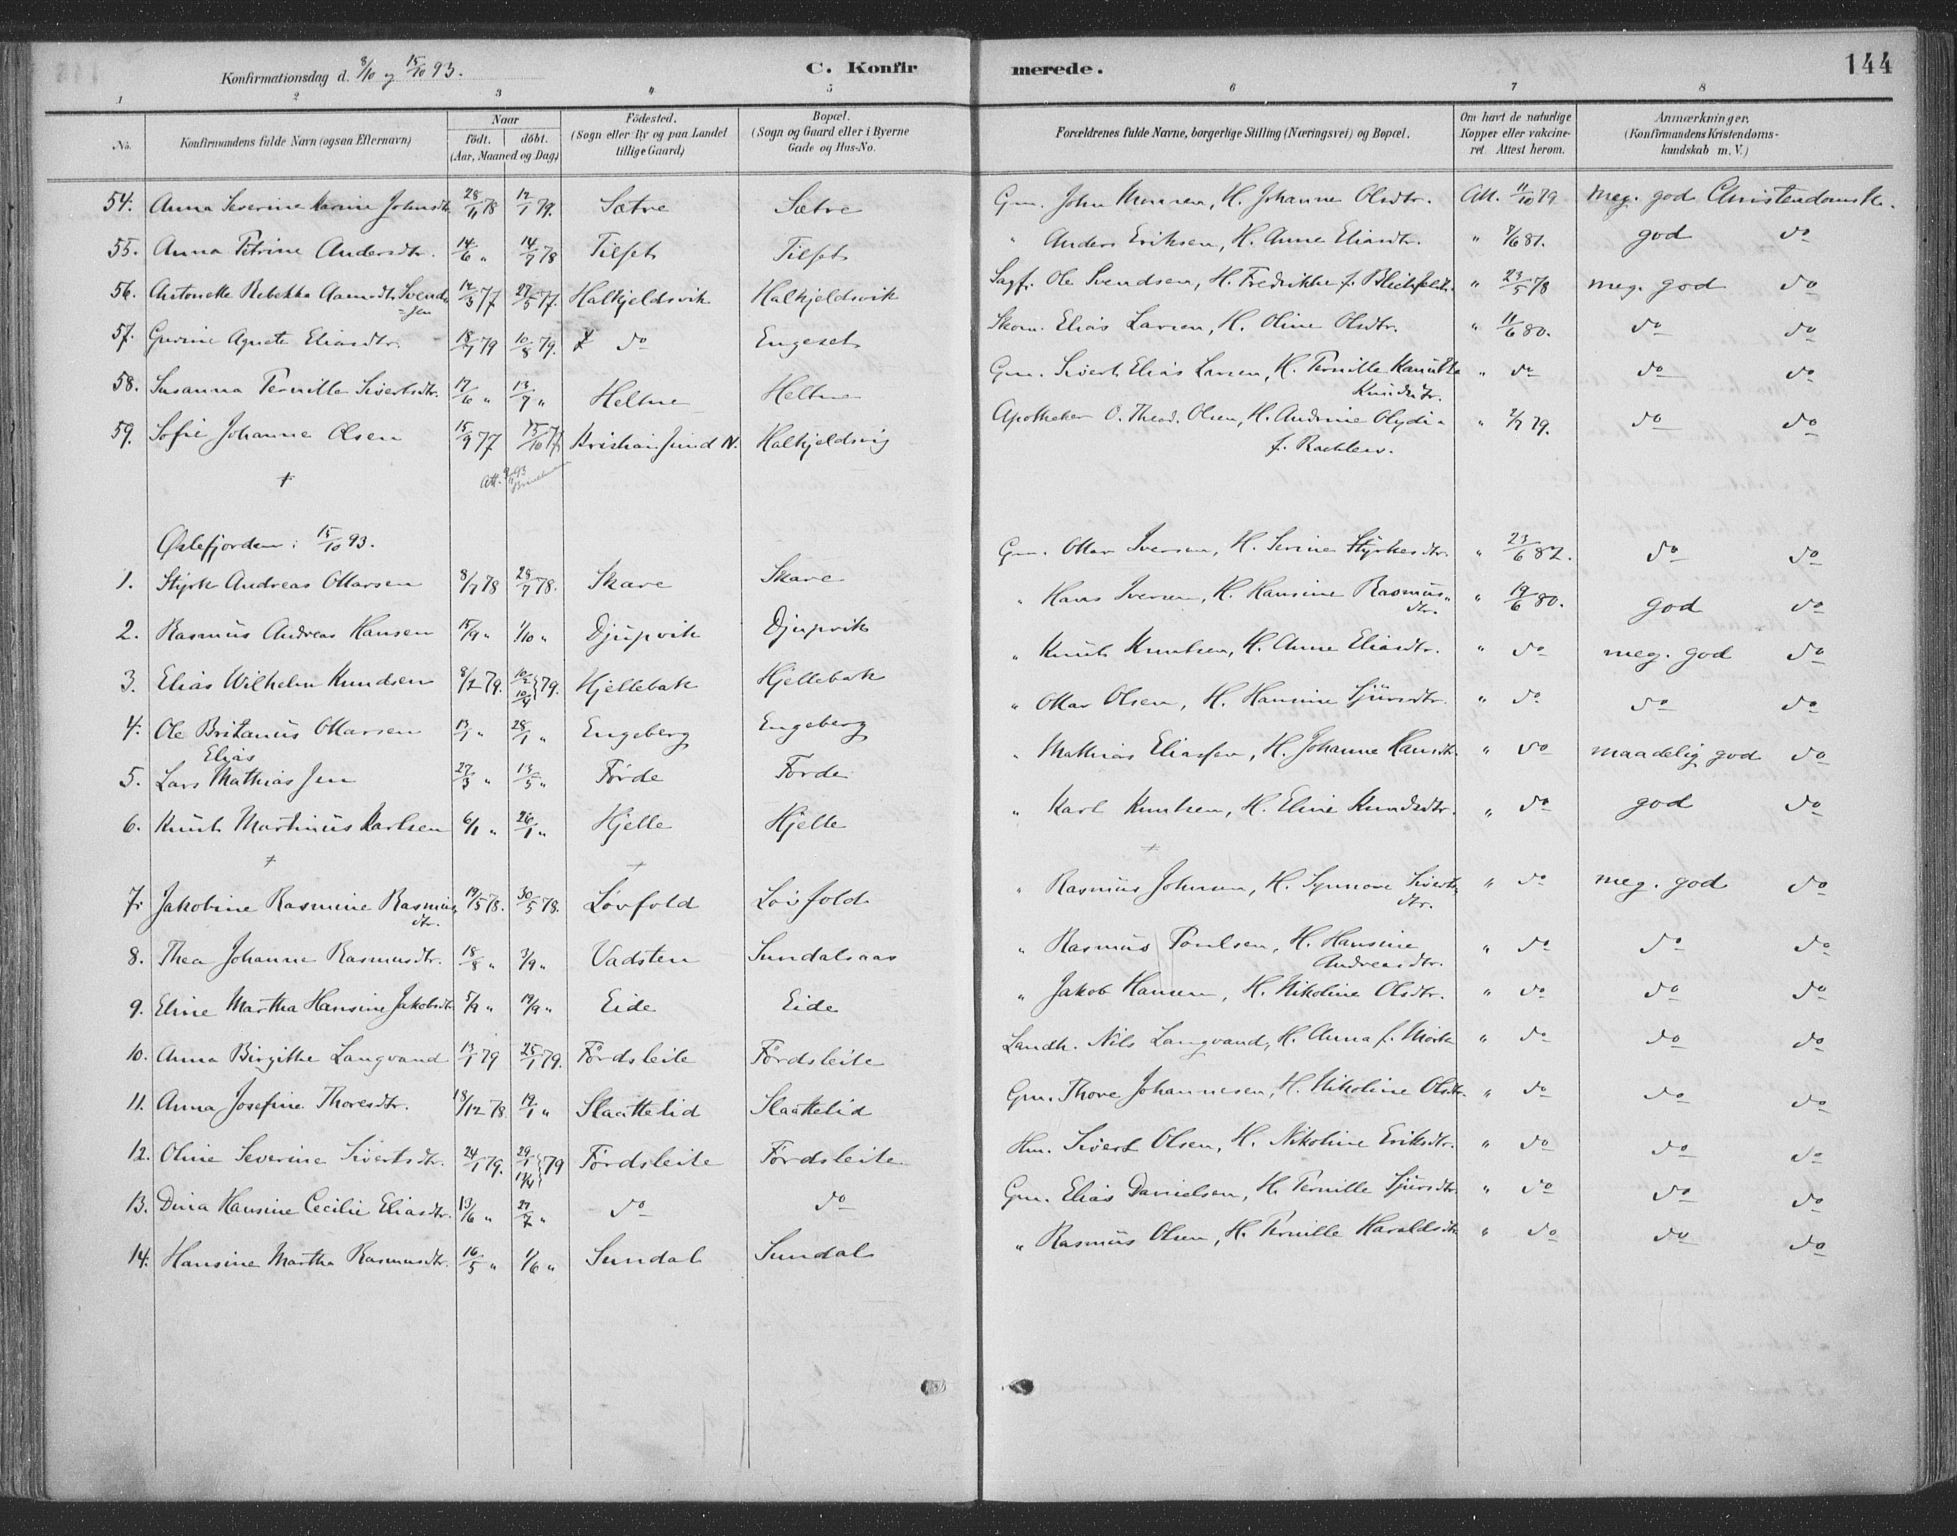 Konfirmationsdag d. 8/10 og 15/10 93. C. Konfirmerede. 144
1 2 3 4 5 6 7 8
No. Konfirmandens fulde Navn (ogsaa Efternavn) Naar født. døbt. (Aar, Maaned og Dag) Födested. (Sogn eller By og paa Landet tillige Gaard) Bopæl. (Sogn og Gaard eller i Byerne Gade og Hus-No. Forældrenes fulde Navne, borgerlige Stilling (Næringsvei) og Bopæl. Om havt de naturlige Kopper eller vakcineret. Attest herom. Anmærkninger, (Konfirmandens Kristendomskundskab m. V.)
54. Anna Severine Karine Johnsdtr 28/11 78 12/1 79. Sætre Sætre Gm. John Monsen, H. Johanne Olsdtr. Att. 11/10 79 meg. god Christendomsk.
55. Anna Petrine Andersdtr. 14/6 " 14/7 78 Tilset Tilset " Anders Eriksen, H. Anne Eliasdtr. " 7/6 81. god do
56. Antonette Rebekka Svendsen 12/3 77 27/5 77. Halkjeldsvik Halkjeldsvik Sagf. Ole Svendsen, H. Fredrikke f. " 23/5 78 meg. god do
57. Gurine Agnete Eliasdtr. 18/7 79 10/8 79. do Engeset Skom. Elias Larsen, H. Oline Olsdtr. " 11/6 80. do do
58. Susanna Pernille Sivertsdtr. 17/6 " 13/7 " Heltne Heltne Gm. Sivert Elias Larsen, H. Pernille Knudsdtr. " do do do
59. Sofie Johanne Olsen 15/9 77 15/10 77 Kristiansund N. Halkjeldsvig Apotheker O. Thead. Olsen, H. Andrine Olydia " 2/7 79. do do
+ Att.
Ørlefjorden: 15/10 93.
1. Styrk Andreas Ottarsen 8/7 78 28/7 78. Skare Skare Gm. Ottar Iversen, H. Serine Styrkesdtr. " 23/6 82. do do
2. Rasmus Andreas Hansen 15/9 " 1/10 " Djupvik Djupvik " Hans Iversen, H. Hansine Rasmusdtr. " 19/6 80. god do
3. Elias Wilhelm Knudsen 8/2 79. 10/2 10/4 } 79. Hjellebak Hjellebak " Knut Knutsen, H. Anne Eliasdtr. " do meg. god do
4. Ole Britanus Ottarsen 13/1 " 28/1 " Engeberg Engeberg " Ottar Olsen, H. Hansine Sjursdtr. " do do do
5. Lars Mathias Elias Jen 27/3 " 13/5 " Førde Førde " Mathias Eliassen, H. Johanne Hansdtr. " do maadelig god do
6. Knut Martinus Karlsen 6/1 " 26/1 " Hjelle Hjelle " Karl Knutsen, H. Eline Knudsdtr. " do god do
+
7. Jakobine Rasmine Rasmusdtr. 19/5 78. 30/5 78. Løvfold Løvfold " Rasmus Johnsen, H. Synnøve Sivertsdtr. " do meg. god do
8. Thea Johanne Rasmusdtr. 18/8 " 3/9 " Vadsten Sundalsaas " Rasmus Paulsen, H. Hansine Andreasdtr. " do do do
9. Eline Martha Hansine Jakobsdtr 5/9 " 19/9 " Eide Eide " Jakob Hansen, H. Nikoline Olsdtr. " do do do
10. Anna Birgitte Langvand 13/1 79 25/1 79. Førdsleite Førdsleite Landh. Nils Langvand, H. Anna f. Mork " do do do
11. Anna Josefine Thoresdtr. 18/12 78 19/1 " Slaattelid Slaattelid Gm. Thore Johannesen, H. Nikoline Olsdtr. " do do do
12. Oline Severine Sivertsdtr. 24/1 79. 29/1 14/4 } 79 Førdsleite Førdsleite Hm. Sivert Olsen, H. Nikoline Eriksdtr. " do do do
13. Dina Hansine Cecilie Eliasdtr. 13/6 " 27/7 " do do Gm. Elias Danielsen, H. Pernille Sjursdtr. " do do do
14. Hansine Martha Rasmusdtr. 16/5 " 1/6 " Sundal Sundal " Rasmus Olsen, H. Pernille Haraldsdtr. " do do do